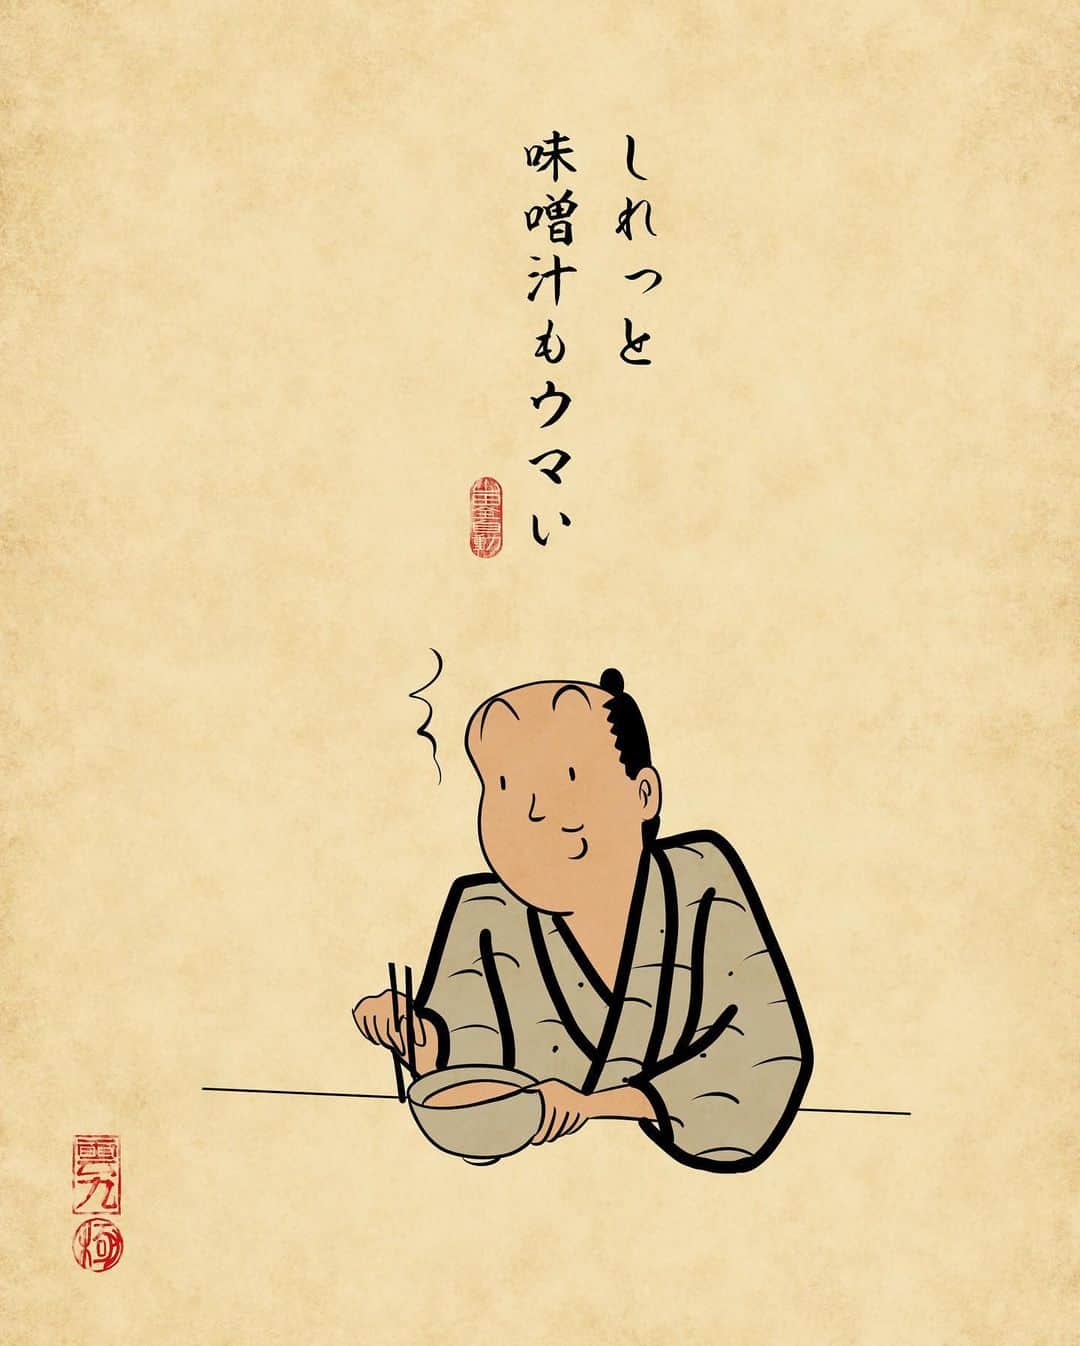 しれっと
味噌汁もウマい
雲九
極